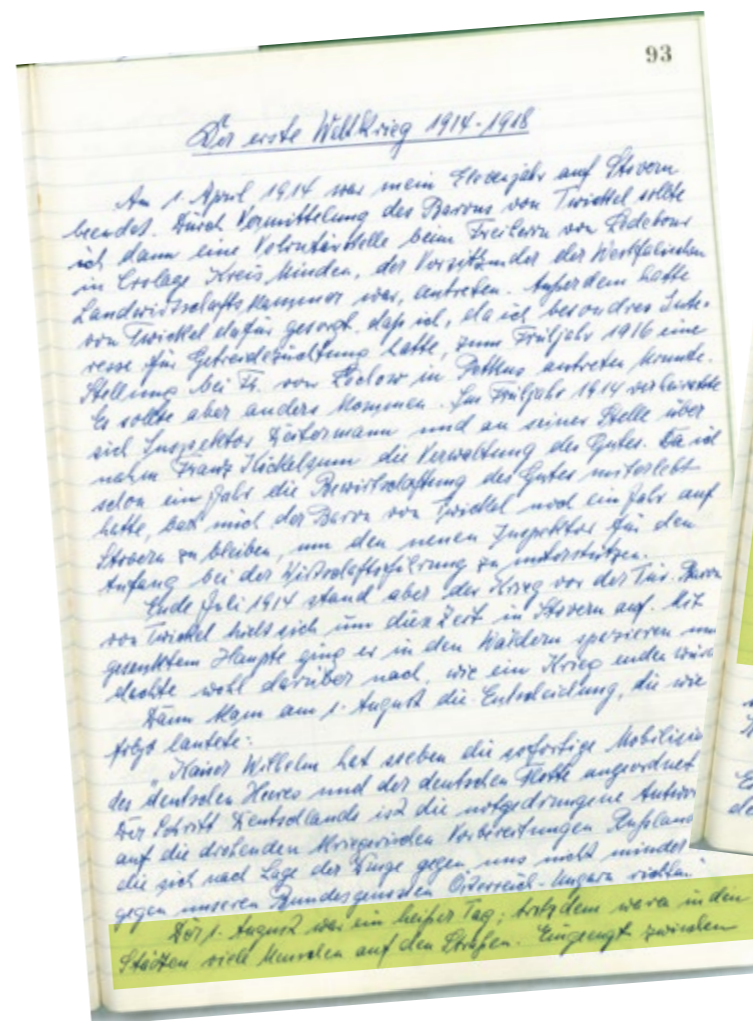 93
Der erste Weltkrieg 1914-1918
Am 1. April 1914 war mein Elevenjahr auf Stovern
beendet. Durch Vermittelung des Barons von Twickel sollte
ich dann eine Volontärstelle beim Freiherrn von Ledebour
in Crollage Kreis Minden, der Vorsitzender der Westfälischen
Landwirtschaftskammer war, antreten. Außerdem hatte
von Twickel dafür gesorgt, daß ich, da ich besondres Inte-
resse für Getreidezüchtung hatte, zum Frühjahr 1916 eine
Stellung bei Fr. von Lochow in Petkus antreten konnte.
Es sollte aber anders kommen. Im Frühjahr 1914 verheiratete
sich Inspektor Deitermann und an seiner Stelle über
nahm Franz Kickelsum die Verwaltung des Gutes. Da ich
schon ein Jahr die Bewirtschaftung des Gutes miterlebt
hatte, bat mich der Baron von Twickel noch ein Jahr auf
Stovern zu bleiben, um den neuen Inspektor für den
Anfang bei der Wirtschaftsführung zu unterstützen.
Ende Juli 1914 stand aber der Krieg vor der Tür. Baron
von Twickel hielt sich um diese Zeit in Stovern auf. Mit
gesenktem Haupte ging er in den Wäldern spazieren und
dachte wohl darüber nach, wie ein Krieg enden würde
Dann kam am 1. August die Entscheidung, die wie
folgt lautete:
„Kaiser Wilhelm hat soeben die sofortige Mobilisie
des deutschen Heeres und der deutschen Flotte angeordnet
Der Schritt Deutschlands ist die notgedrungene Antwor
auf die drohenden kriegerischen Vorbereitungen Rußland
die sich nach Lage der Dinge gegen uns nicht minder
gegen unseren Bundesgenossen Österreich-Ungarn richten."
Der 1. August war ein heißer Tag; trotzdem waren in den
Städten viele Menschen auf den Straßen. Eingeengt zwischen